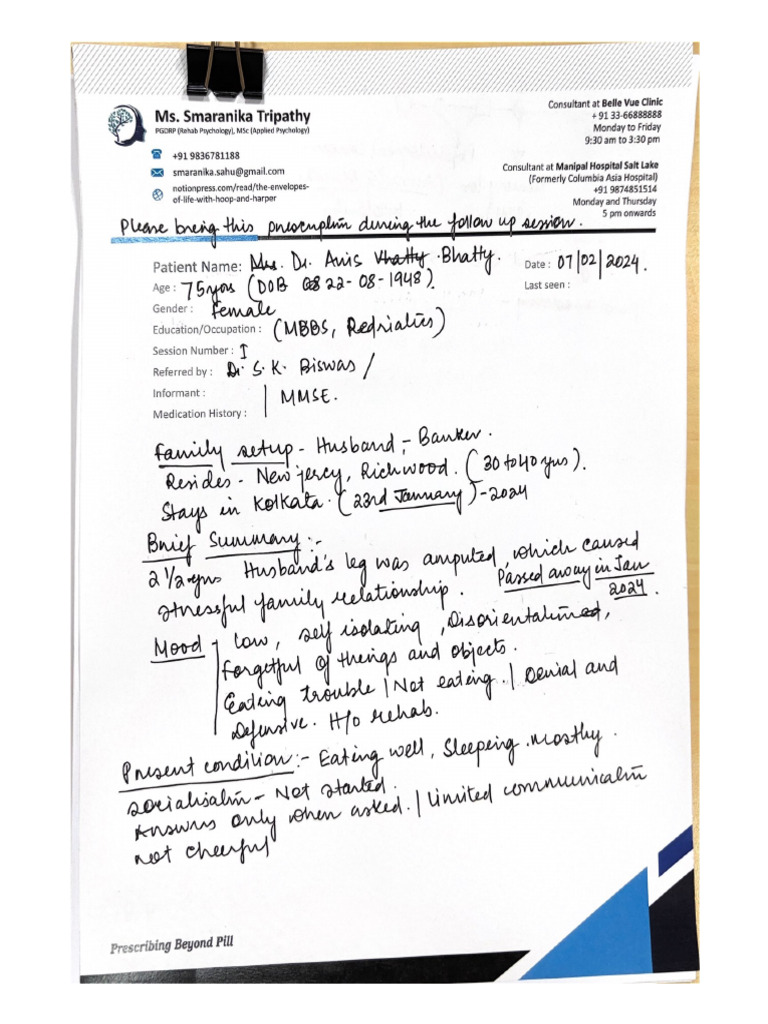 Ms. Smaranika Tripathy
PGDRP (Rehab Psychology), MSc (Applied Psychology)
+91 9836781188
smaranika.sahu@gmail.com
notionpress.com/read/the-envelopes-
of-life-with-hoop-and-harper
Consultant at Belle Vue Clinic
+ 91 33-66888888
Monday to Friday
9:30 am to 3:30 pm
Consultant at Manipal Hospital Salt Lake
(Formerly Columbia Asia Hospital)
+91 9874851514
Monday and Thursday
5 pm onwards
Please bring this prescription during the follow up session.
Patient Name: Mrs. Dr. Avis Vhatty Bhatty.
Date : 07/02/2024.
Age : 75yrs (DOB 08 22-08-1948).
Last seen :
Gender : female
Education/Occupation : (MBBS,
Session Number : I
Referred by : Dr. S. K. Biswas /
Informant : | MMSE.
Medication History :
Family setup - Husband, - Banker.
Resides - New jercy, Richwood. (30 to 40 yrs).
Stays in Kolkata. (23rd January) - 2024
Brief Summary :-
2 1/2 yrs Husband's leg was amputed, which caused
stressful family relationship. Passed away in Jan
2024.
Mood - low, self isolating, Disorientation,
forgetful of things and objects.
Eating trouble | Not eating. | Denial and
Defensive. H/o rehab.
Present condition :- Eating well, Sleeping. Mostly.
socialisatin - Not started.
Answers only when asked. | Limited communicatin
not cheerful
Prescribing Beyond Pill